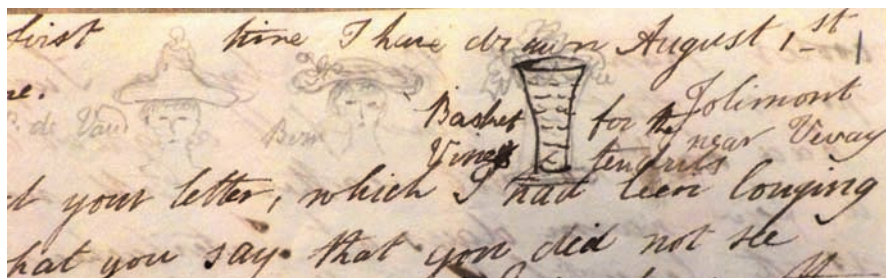 first time I have drawn August 1st
re.
P. de Vaud Bern Basket for the Jolimont
Vines tendrils near Vevay
t your letter, which I had been longing
hat you say that you did not see